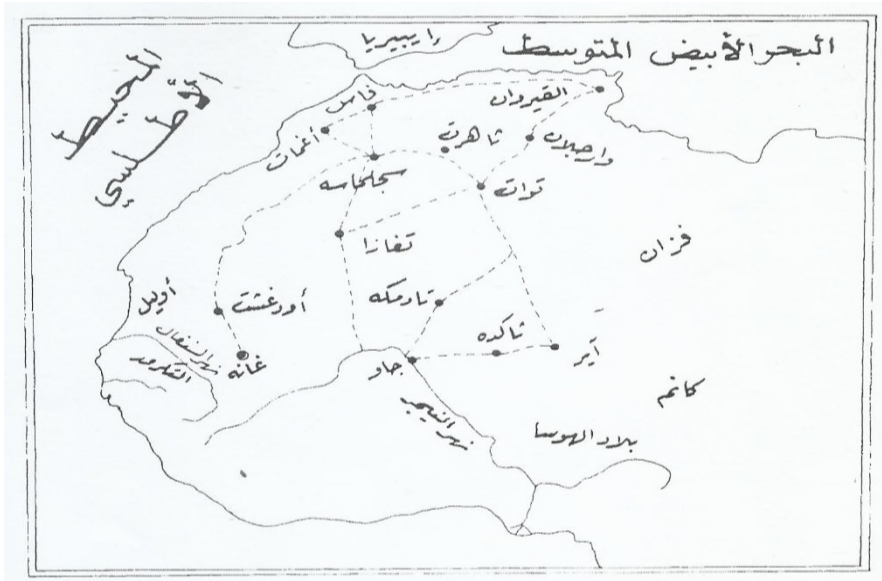 البحر الأبيض المتوسط
إيبيريا
المحيط
الأطلسي
فاس
القيروان
أغمات
تاهرت
وارجلان
سجلماسه
توات
تغازا
فزان
أويل
أودغشت
تادمكه
تاكده
آير
نهر السنغال
التكرور
غانه
جاو
كانم
نهر النيجر
بلاد الهوسا